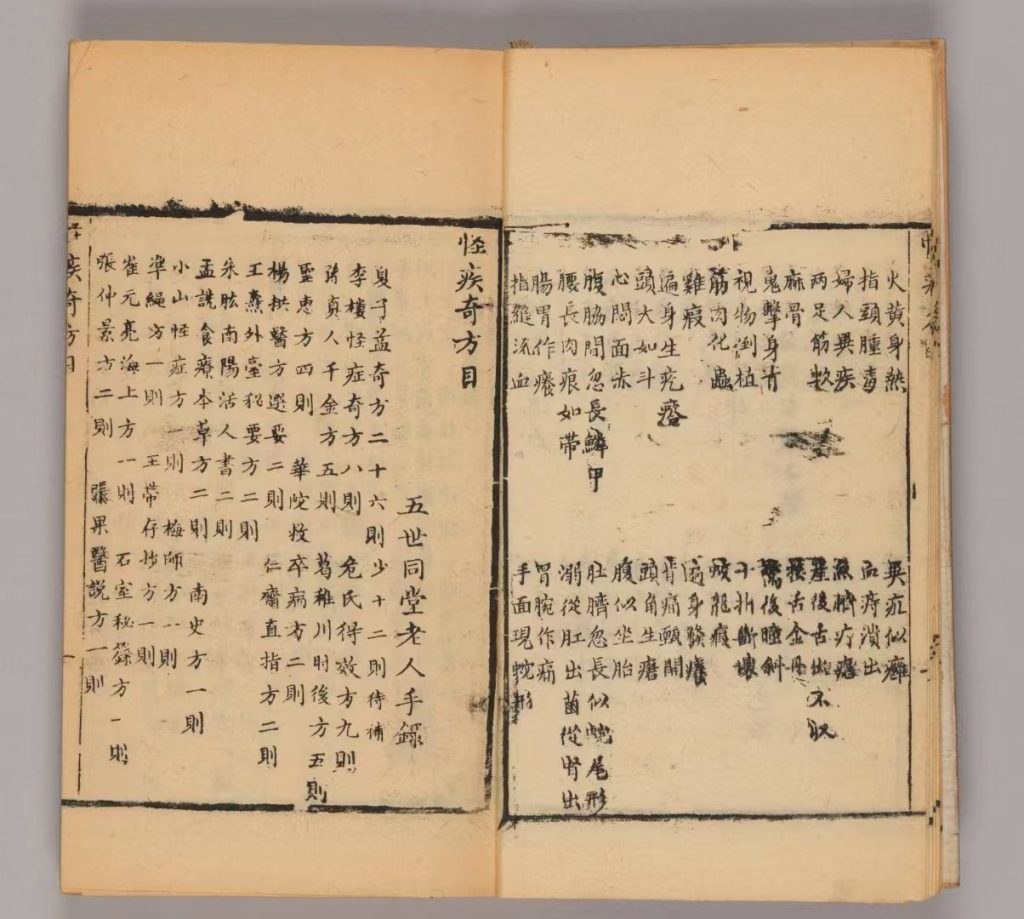 火黃身熱 異疔似癬
指頭腫毒 血痔潰出
婦人異疾 臍疔瘡
兩足筋軟 產後舌出不収
麻骨 接舌金丹
鬼擊身青 驚後瞳斜
視物倒植 十趾斷壞
筋肉化蟲 蛟龍瘕
雞瘕 遍身發癢
遍身生疣 背痛開
頭大如斗 頭角生瘡
心悶面赤 腹似坐胎
腹脇間忽長鱗甲 肚臍忽長似蛇尾形
腰長肉痕如帶 溺從肛出菌從腎出
腸胃作癢 胃腕作痛
指縫流血 手面現蛇形
怪疾奇方目
五世同堂老人手錄
夏子益奇方二十六則少十二則待補
李樓怪症奇方八則 危氏得效方九則
孫貞人千金方五則 葛稚川肘後方五則
聖惠方四則 華陀救卒病方二則
楊拱醫方選要二則 仁齋直指方二則
王燾外臺秘要方二則
朱肱南陽活人書二則
孟詵食療本草方二則 南史方一則
小山怪症方一則 梅師方一則
準繩方一則 王帶存抄方一則
崔元亮海上方一則 石室秘籙方一則
張仲景方二則 張果醫説方一則
疾奇方目